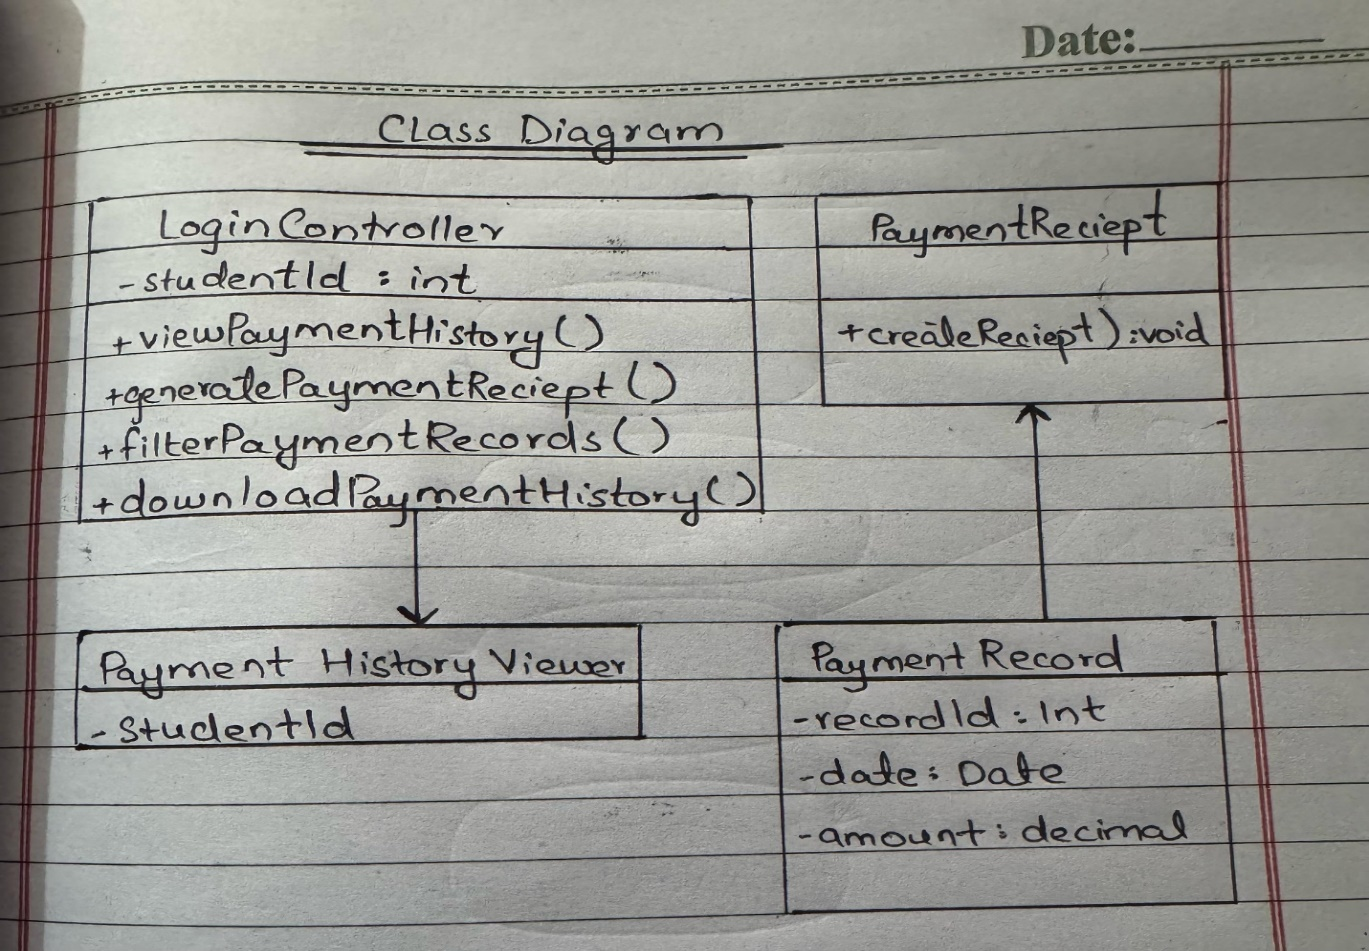 Date:
Class Diagram
LoginController
- studentId : int
+ viewPaymentHistory()
+generatePaymentReciept()
+ filterPaymentRecords()
+ downloadPaymentHistory()
PaymentReciept
+createReciept):void
Payment History Viewer
- StudentId
Payment Record
-recordId : Int
-date : Date
-amount : decimal